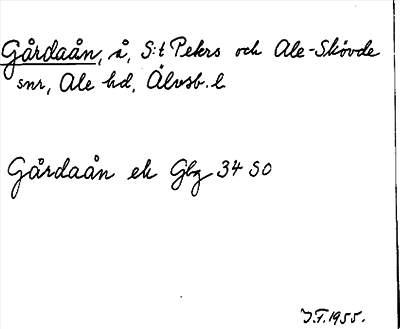 Gårdaån, å, S:t Pekrs och Ale-Skövde
snr, Ale hd, Älvsb. l
Gårdaån ek Gbg 34 SO
J.F. 1955.